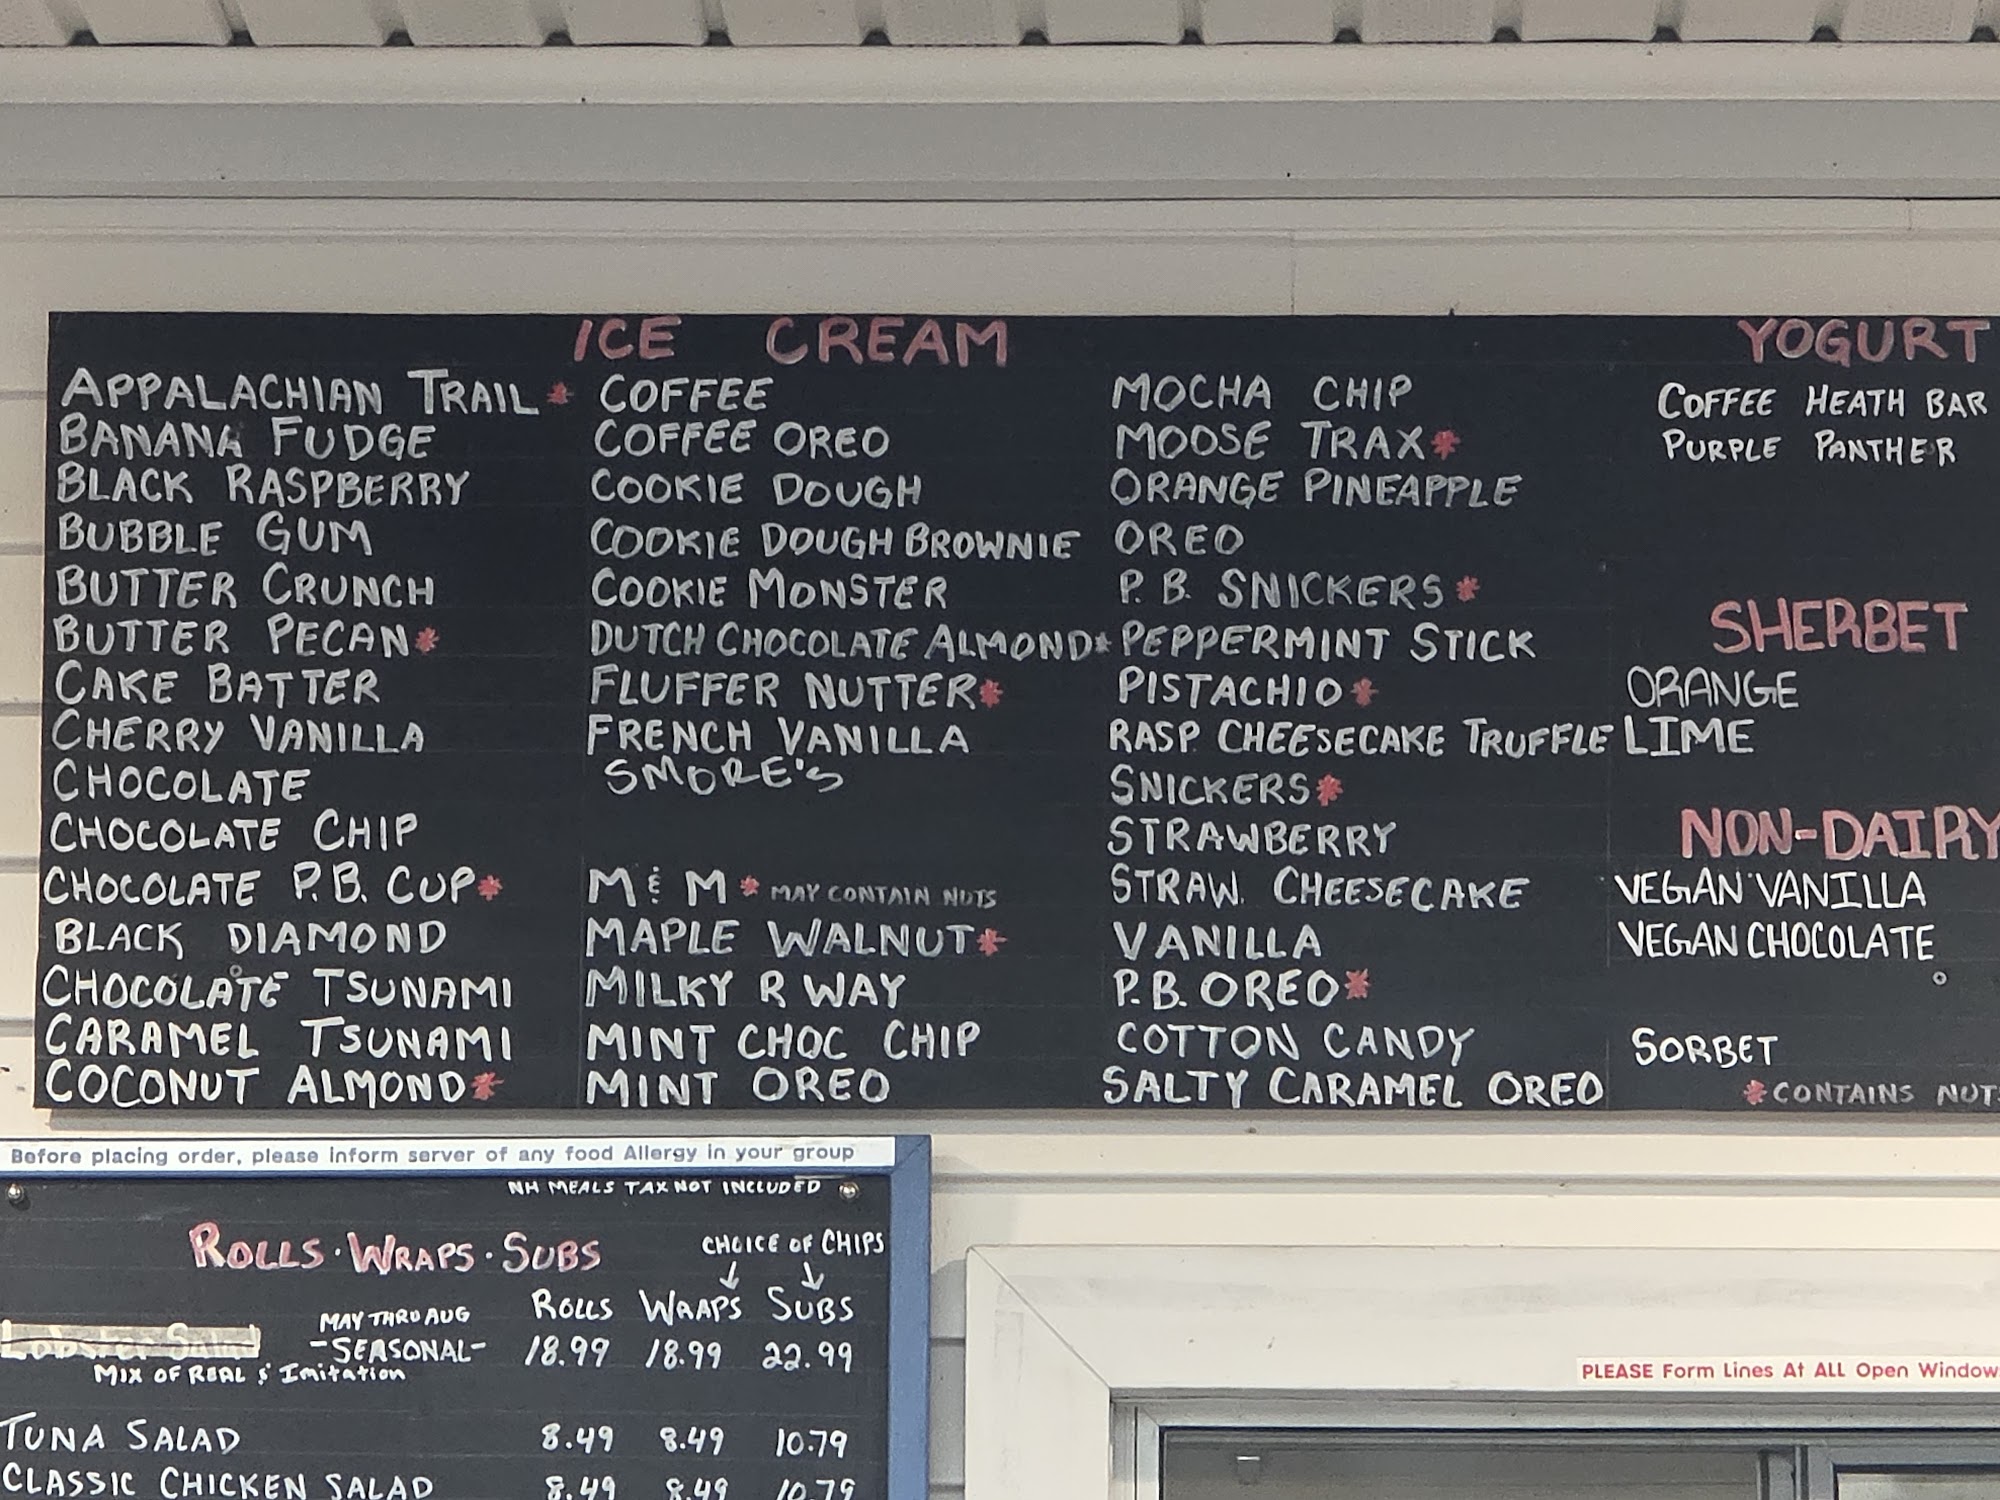 ICE CREAM
APPALACHIAN TRAIL*
BANANA FUDGE
BLACK RASPBERRY
BUBBLE GUM
BUTTER CRUNCH
BUTTER PECAN*
CAKE BATTER
CHERRY VANILLA
CHOCOLATE
CHOCOLATE CHIP
CHOCOLATE P.B. CUP*
BLACK DIAMOND
CHOCOLATE TSUNAMI
CARAMEL TSUNAMI
COCONUT ALMOND*
COFFEE
COFFEE OREO
COOKIE DOUGH
COOKIE DOUGH BROWNIE
COOKIE MONSTER
DUTCH CHOCOLATE ALMOND*
FLUFFER NUTTER*
FRENCH VANILLA
SMORE'S
M & M * MAY CONTAIN NUTS
MAPLE WALNUT*
MILKY R WAY
MINT CHOC CHIP
MINT OREO
MOCHA CHIP
MOOSE TRAX*
ORANGE PINEAPPLE
OREO
P. B. SNICKERS*
PEPPERMINT STICK
PISTACHIO*
RASP. CHEESECAKE TRUFFLE
SNICKERS*
STRAWBERRY
STRAW. CHEESECAKE
VANILLA
P.B. OREO*
COTTON CANDY
SALTY CARAMEL OREO
YOGURT
COFFEE HEATH BAR
PURPLE PANTHER
SHERBET
ORANGE
LIME
NON-DAIRY
VEGAN VANILLA
VEGAN CHOCOLATE
SORBET
*CONTAINS NUTS
Before placing order, please inform server of any food Allergy in your group
NH MEALS TAX NOT INCLUDED
ROLLS · WRAPS · SUBS
CHOICE OF CHIPS
ROLLS WRAPS SUBS
MAY THRU AUG
-SEASONAL- 18.99 18.99 22.99
MIX OF REAL & Imitation
TUNA SALAD 8.49 8.49 10.79
CLASSIC CHICKEN SALAD 8.49 8.49 10.79
PLEASE Form Lines At ALL Open Windows